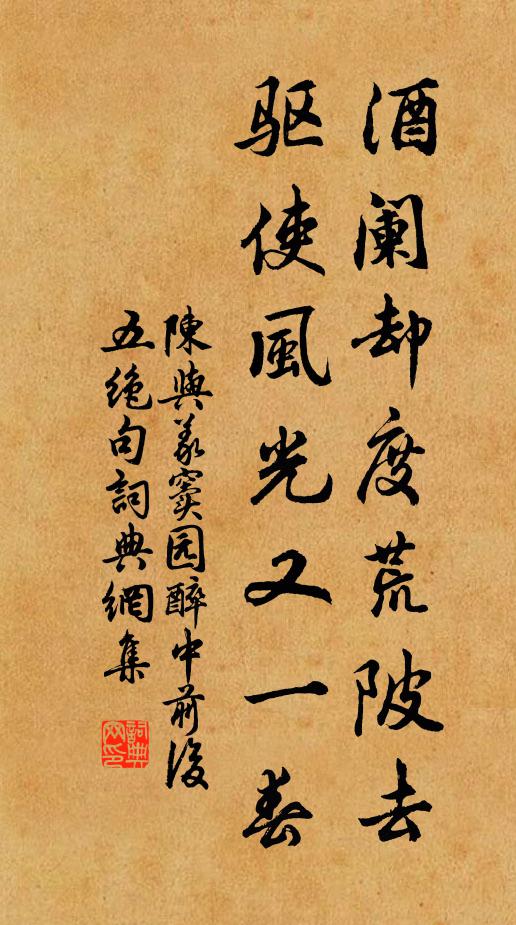 酒阑却度荒陂去
驱使風光又一春
陳與義窦园醉中前後
五绝句詞典網集
詞典網印